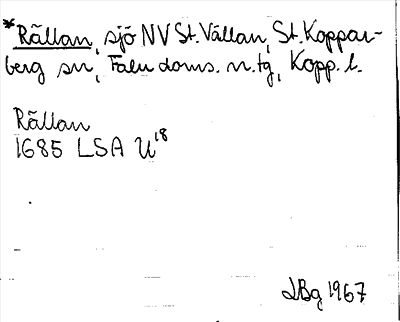 *Rällan, sjö NV St. Vällan, St. Koppar-
berg sn, Falu doms. n. tg, Kopp. l.
Rällan
1685 LSA U18
LBg 1967